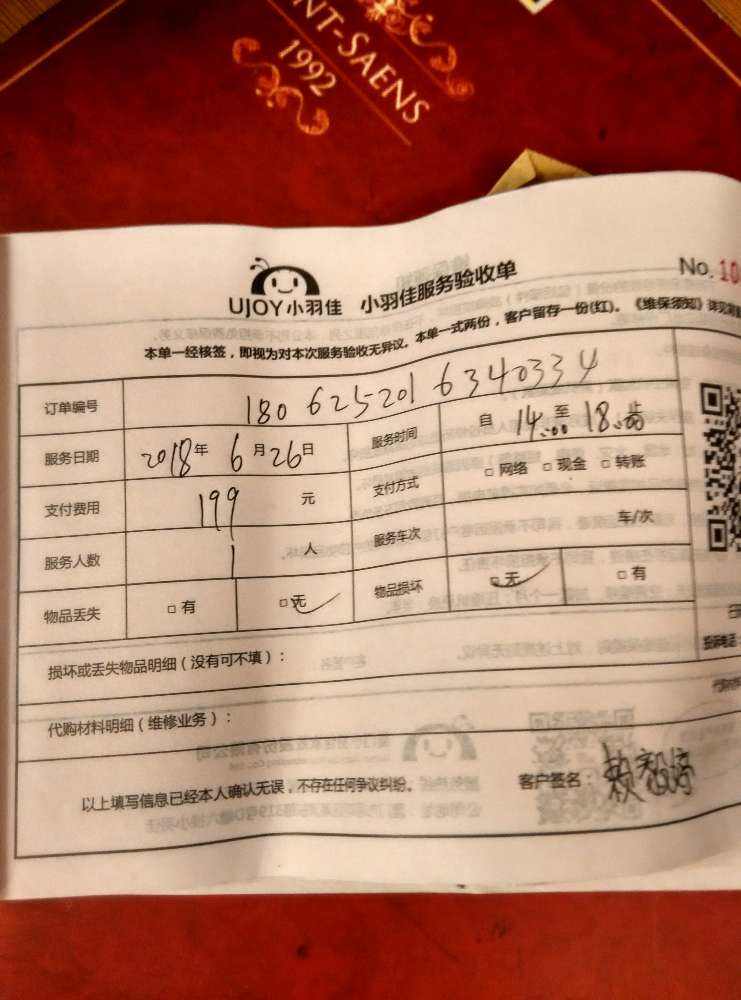 NT-SAENS
1992
No. 10
UJOY小羽佳 小羽佳服务验收单
本单一经核签，即视为对本次服务验收无异议。本单一式两份，客户留存一份(红)。《维保须知》详见背面
订单编号 180 625201 6340334
服务日期 2018年 6月26日 服务时间 自 14:00 至 18:00 止
支付费用 199 元 支付方式 □网络 □现金 □转账
服务人数 1 人 服务车次 车/次
物品丢失 □有 □无 物品损坏 □无 □有
损坏或丢失物品明细（没有可不填）：
代购材料明细（维修业务）：
以上填写信息已经本人确认无误，不存在任何争议纠纷。 客户签名：赖毅婷